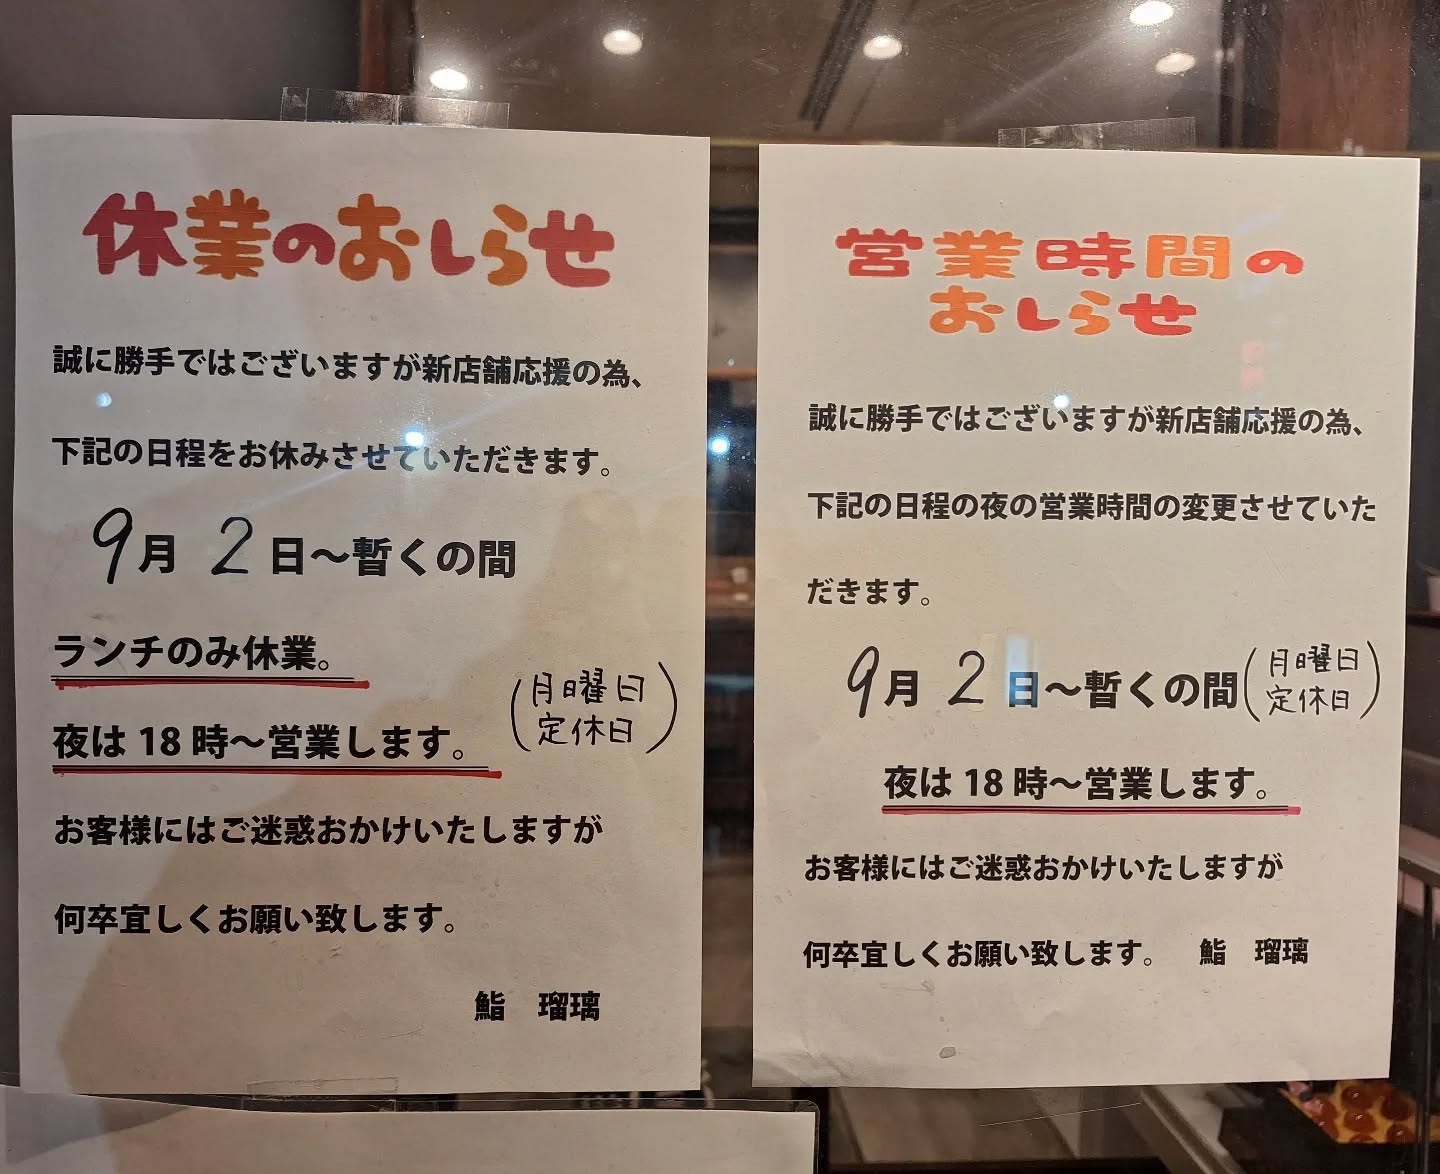 休業のおしらせ
誠に勝手ではございますが新店舗応援の為、
下記の日程をお休みさせていただきます。
9月 2日～暫くの間
ランチのみ休業。
夜は 18 時～営業します。
(月曜日
定休日)
お客様にはご迷惑おかけいたしますが
何卒宜しくお願い致します。
鮨 瑠璃
営業時間の
おしらせ
誠に勝手ではございますが新店舗応援の為、
下記の日程の夜の営業時間の変更させていた
だきます。
9月 2日～暫くの間(月曜日
定休日)
夜は 18 時～営業します。
お客様にはご迷惑おかけいたしますが
何卒宜しくお願い致します。 鮨 瑠璃